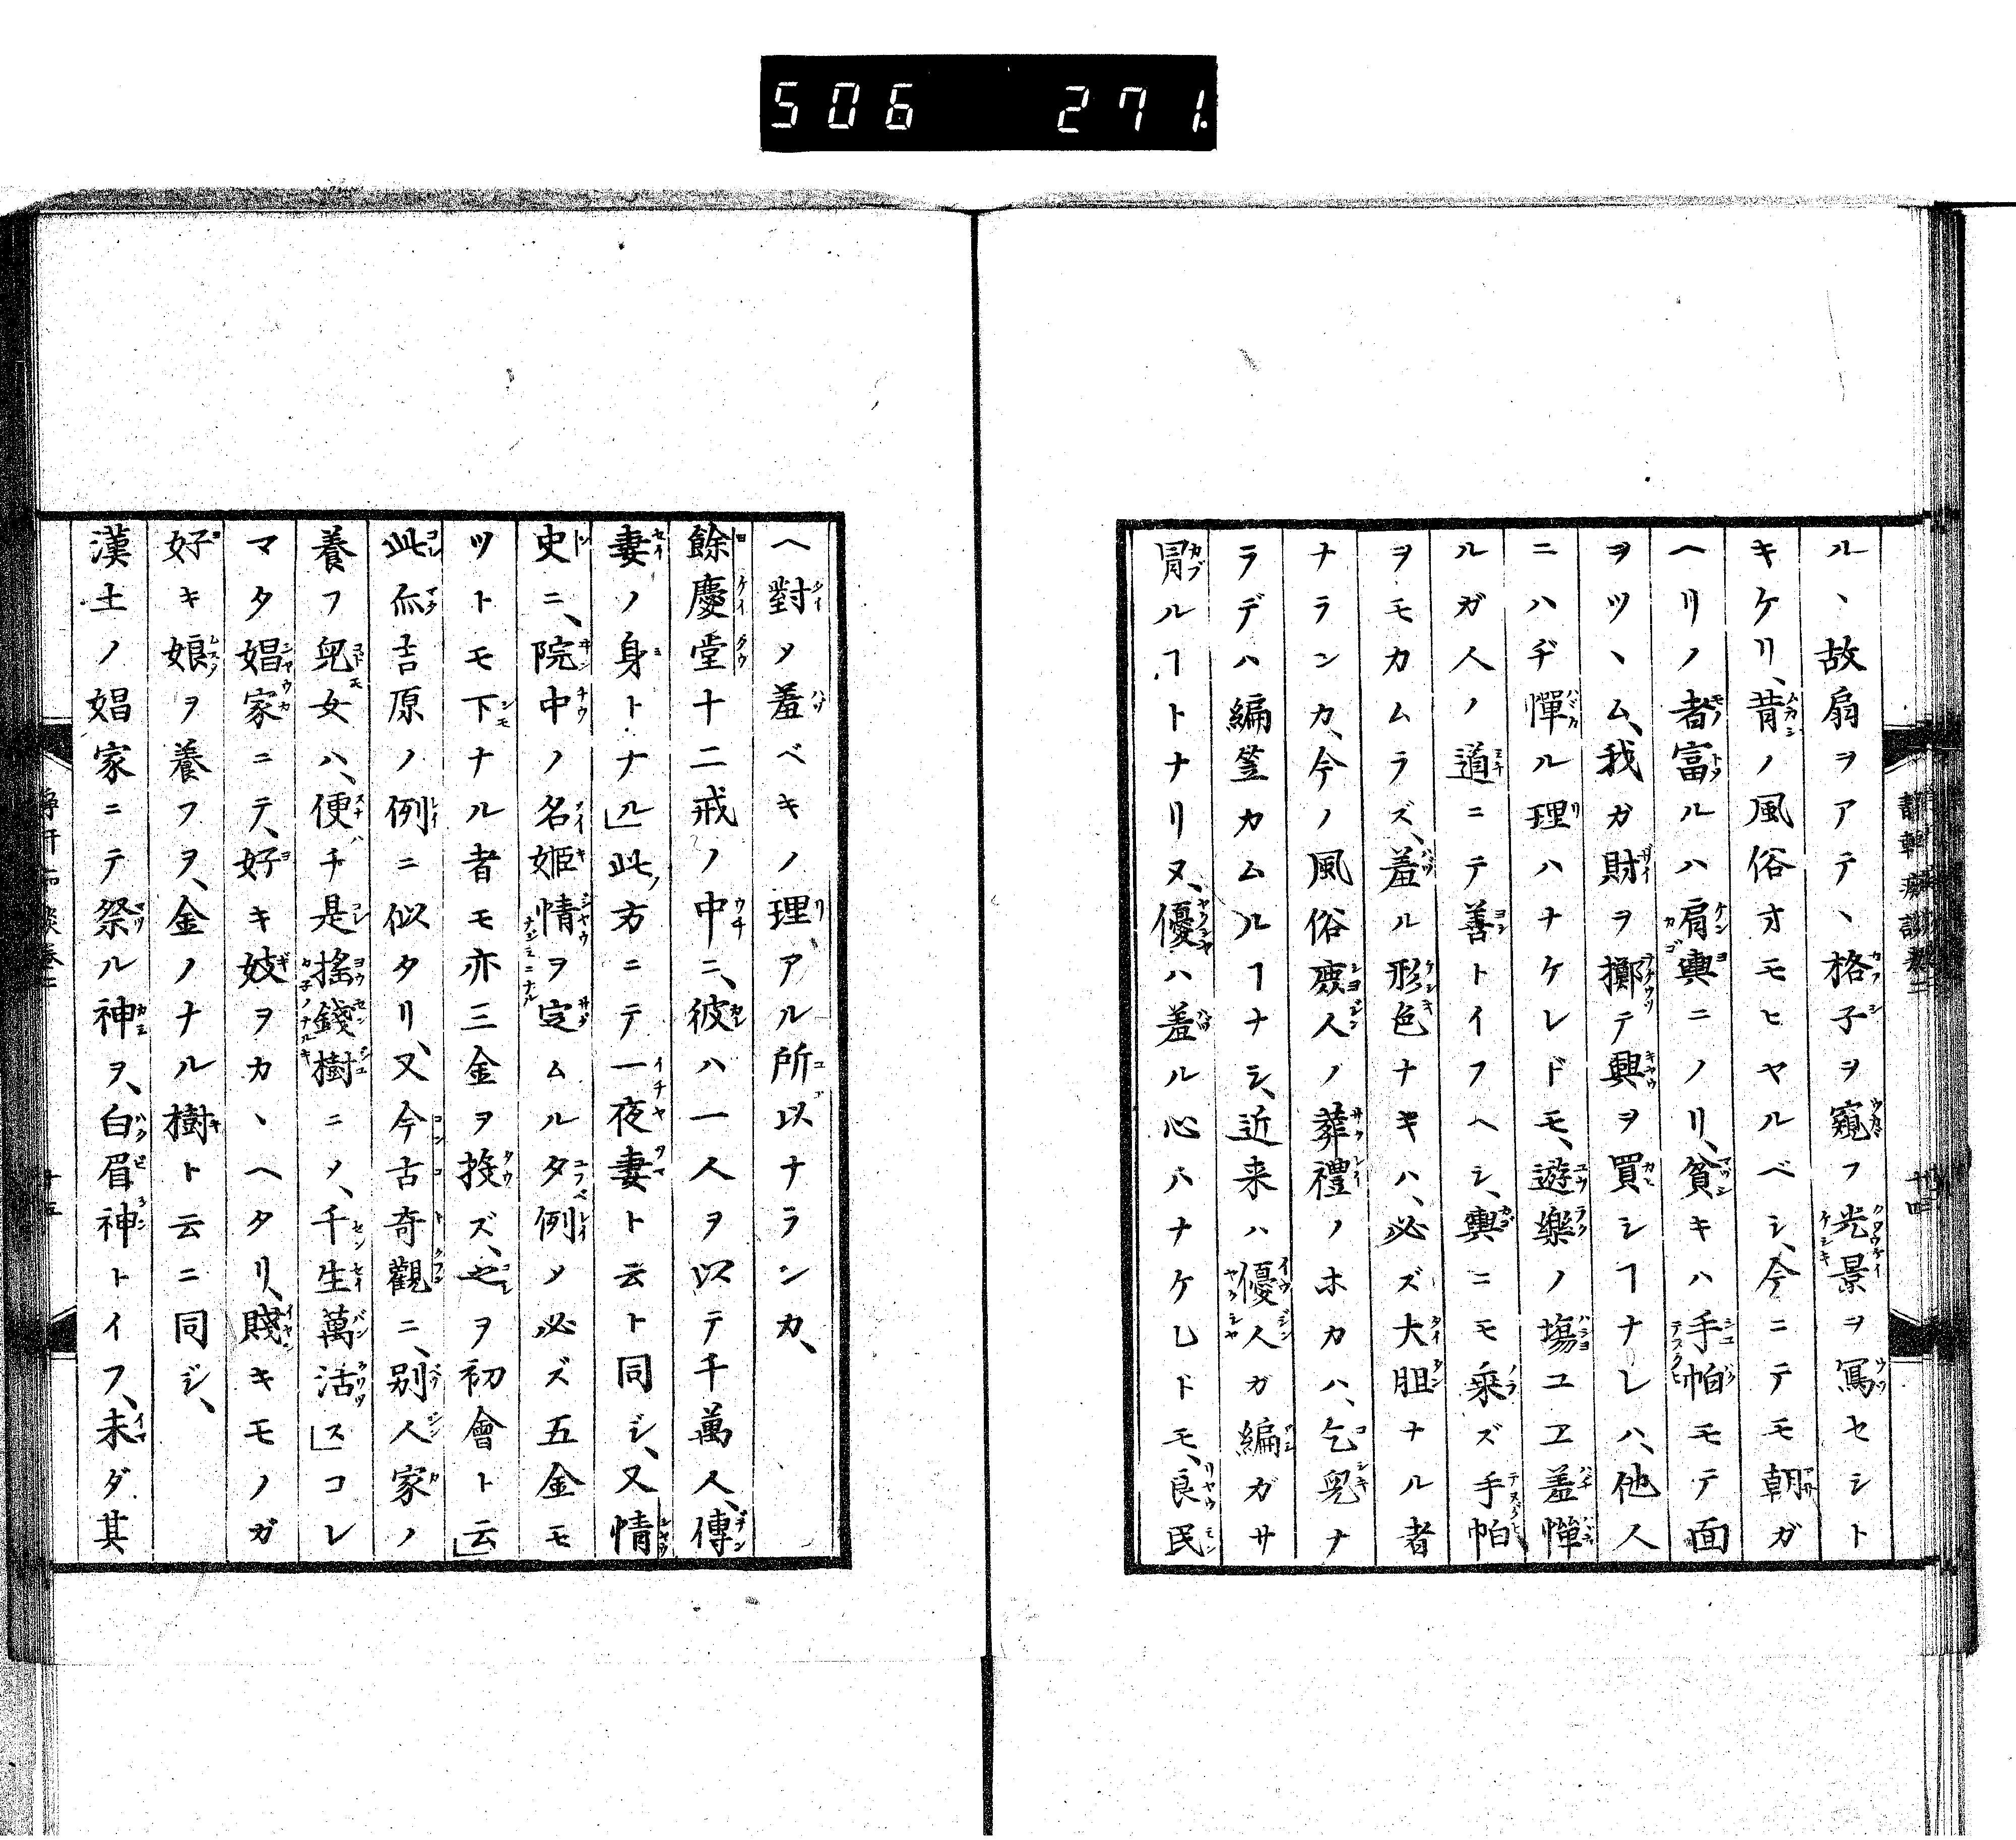 506 271
ル、故扇ヲアテ、格子ヲ窺フ光景ヲ寫セシト
キケリ、昔ノ風俗オモヒヤルベシ、今ニテモ朝ガ
ヘリノ者富ルハ肩輿ニノリ、貧キハ手帕モテ面
ヲツヽム、我ガ財ヲ擲テ興ヲ買シヿナレハ、他人
ニハヂ憚ル理ハナケレドモ、遊樂ノ塲ユヱ羞憚
ルガ人ノ道ニテ善トイフヘシ、輿ニモ乘ズ手帕
ヲモカムラズ、羞ル形色ナキハ、必ズ大胆ナル者
ナランカ、今ノ風俗庶人ノ葬禮ノホカハ、乞兒ナ
ラデハ編笠カムルヿナシ、近来ハ優人ガ編ガサ
冐ルヿトナリヌ、優ハ羞ル心ハナケレドモ、良民
ヘ對シ羞ベキノ理アル所以ナランカ、
餘慶堂十二戒ノ中ニ、彼ハ一人ヲ以テ千萬人、傳
妻ノ身トナル」此方ニテ一夜妻ト云ト同シ、又情
史ニ、院中ノ名姬情ヲ定ムルタ例メ必ズ五金モ
ツトモ下ナル者モ亦三金ヲ投ズ、之ヲ初會ト云」
此亦吉原ノ例ニ似タリ、又今古奇觀ニ、別人家ノ
養フ兒女ハ、便チ是搖錢樹ニメ、千生萬活ス」コレ
マタ娼家ニテ、好キ妓ヲカヽヘタリ、賤キモノガ
好キ娘ヲ養フヲ、金ノナル樹ト云ニ同シ、
漢土ノ娼家ニテ祭ル神ヲ、白眉神トイフ、未ダ其